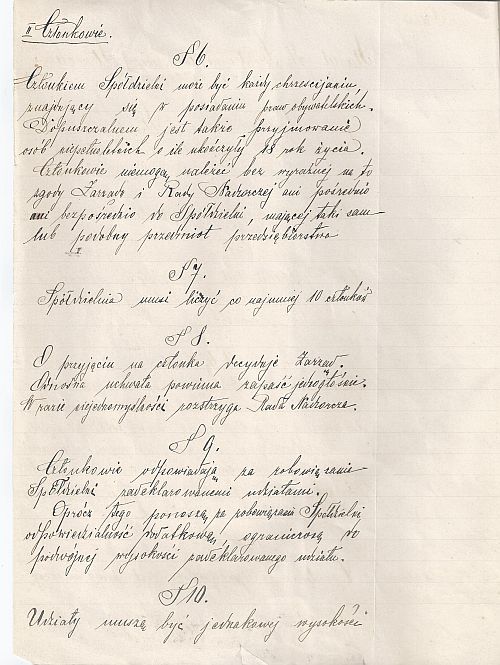 II Członkowie.
§ 6.
Członkiem Spółdzielni może być każdy chrześcijanin,
znajdujący się w posiadaniu praw obywatelskich.
Dopuszczalnem jest także przyjmowanie
osób niepełnoletnich o ile ukończyły 18 rok życia.
Członkowie niemogą należeć bez wyraźnej na to
zgody Zarządu i Rady Nadzorczej ani pośrednio
ani bezpośrednio do Spółdzielni, mającej taki sam
lub podobny przedmiot przedsiębiorstwa
§ 7.
Spółdzielnia musi liczyć co najmniej 10 członków
§ 8.
O przyjęciu na członka decyduje Zarząd.
Odnośna uchwała powinna zapaść jednogłośnie.
W razie niejednomyślności rozstrzyga Rada Nadzorcza.
§ 9.
Członkowie odpowiadają za zobowiązania
Spółdzielni zadeklarowanemi udziałami.
Oprócz tego ponoszą za zobowiązania Spółdzielni
odpowiedzialność dodatkową, ograniczoną do
podwójnej wysokości zadeklarowanego udziału.
§ 10.
Udziały muszą być jednakowej wysokości